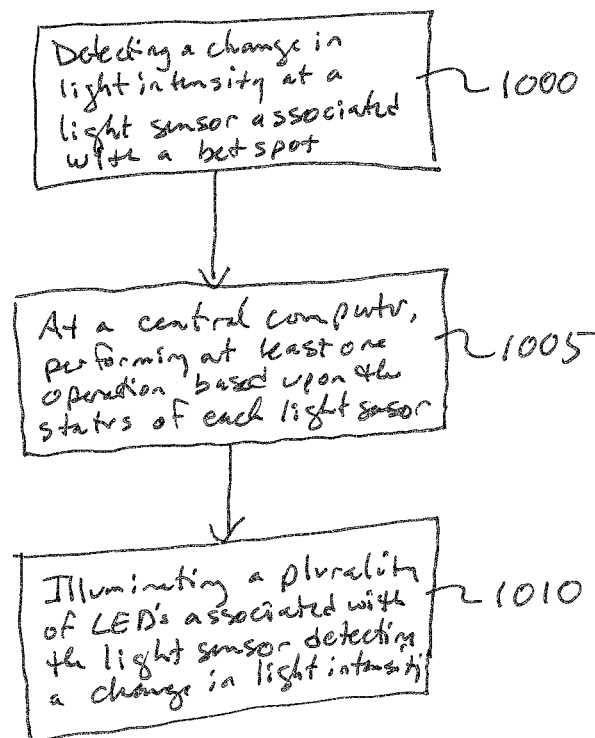 Detecting a change in
light intensity at a
light sensor associated
with a bet spot
1000
At a central computr,
performing at least one
operation based upon the
status of each light sensor
1005
Illuminating a plurality
of LED's associated with
the light sensor detecting
a change in light intensity
1010